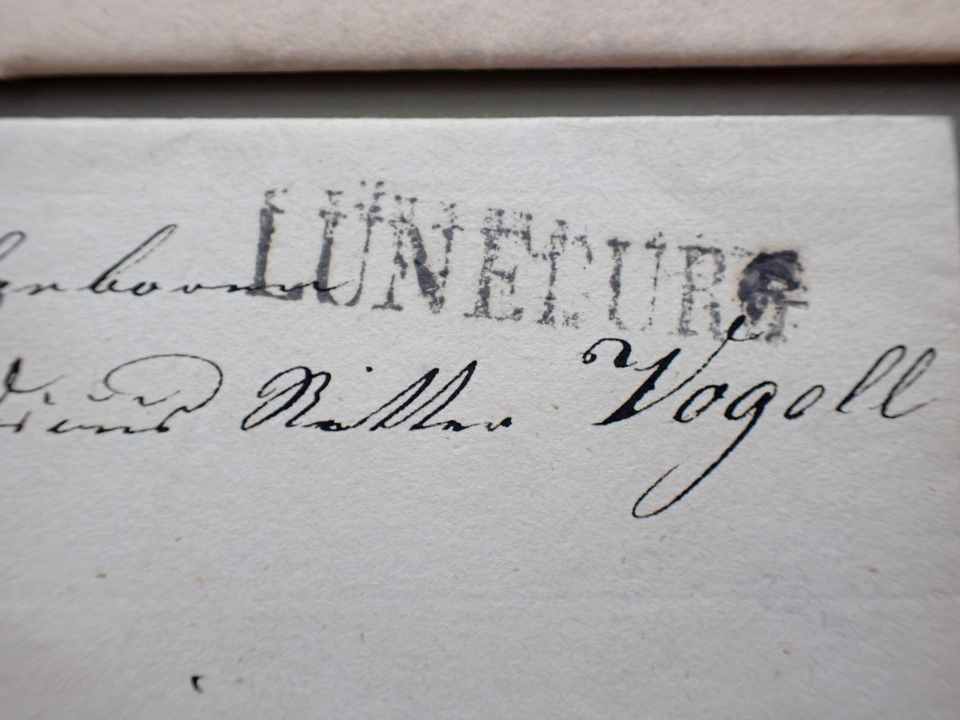 LÜNEBURG
geboren
und Ritter Vogell